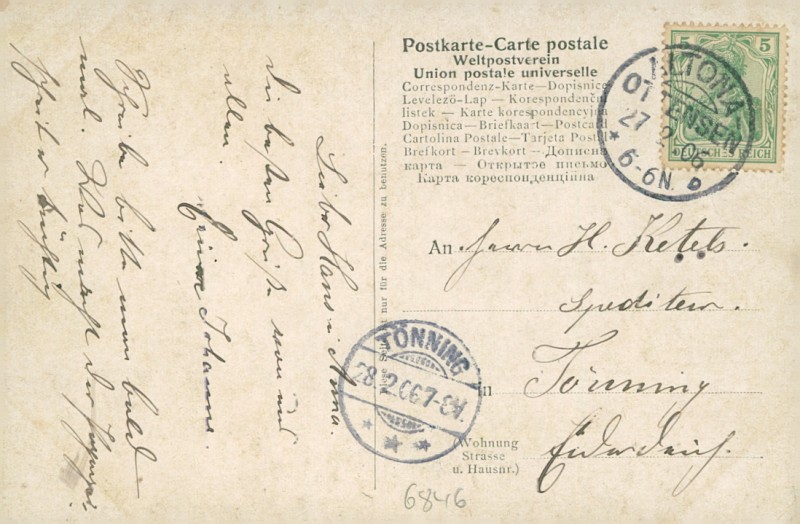 Postkarte-Carte postale
Weltpostverein
Union postale universelle
Correspondenz-Karte — Dopisnice
Levelezö-Lap — Korespondenční
listek — Karte korespondencyjna
Dopisnica — Briefkaart — Postcard
Cartolina Postale — Tarjeta Postal
Brefkort — Brevkort — Дописна
карта — Открытое письмо
Карта кореспонденційна
5 5
DEUTSCHES REICH
ALTONA
OTTENSEN
27 2 06
6-6N.
An Herrn H. Ketels.
Spediteur.
in Tönning
Eiderdeich.
(Wohnung
Strasse
u. Hausnr.)
TÖNNING
28 2 06 7-8V.
nur für die Adresse zu benutzen.
Liebe Hans u. Anna.
die besten Grüße von uns
allen.
Eure Johanna.
Schreibe bitte mal bald
mal. Was macht der
6846